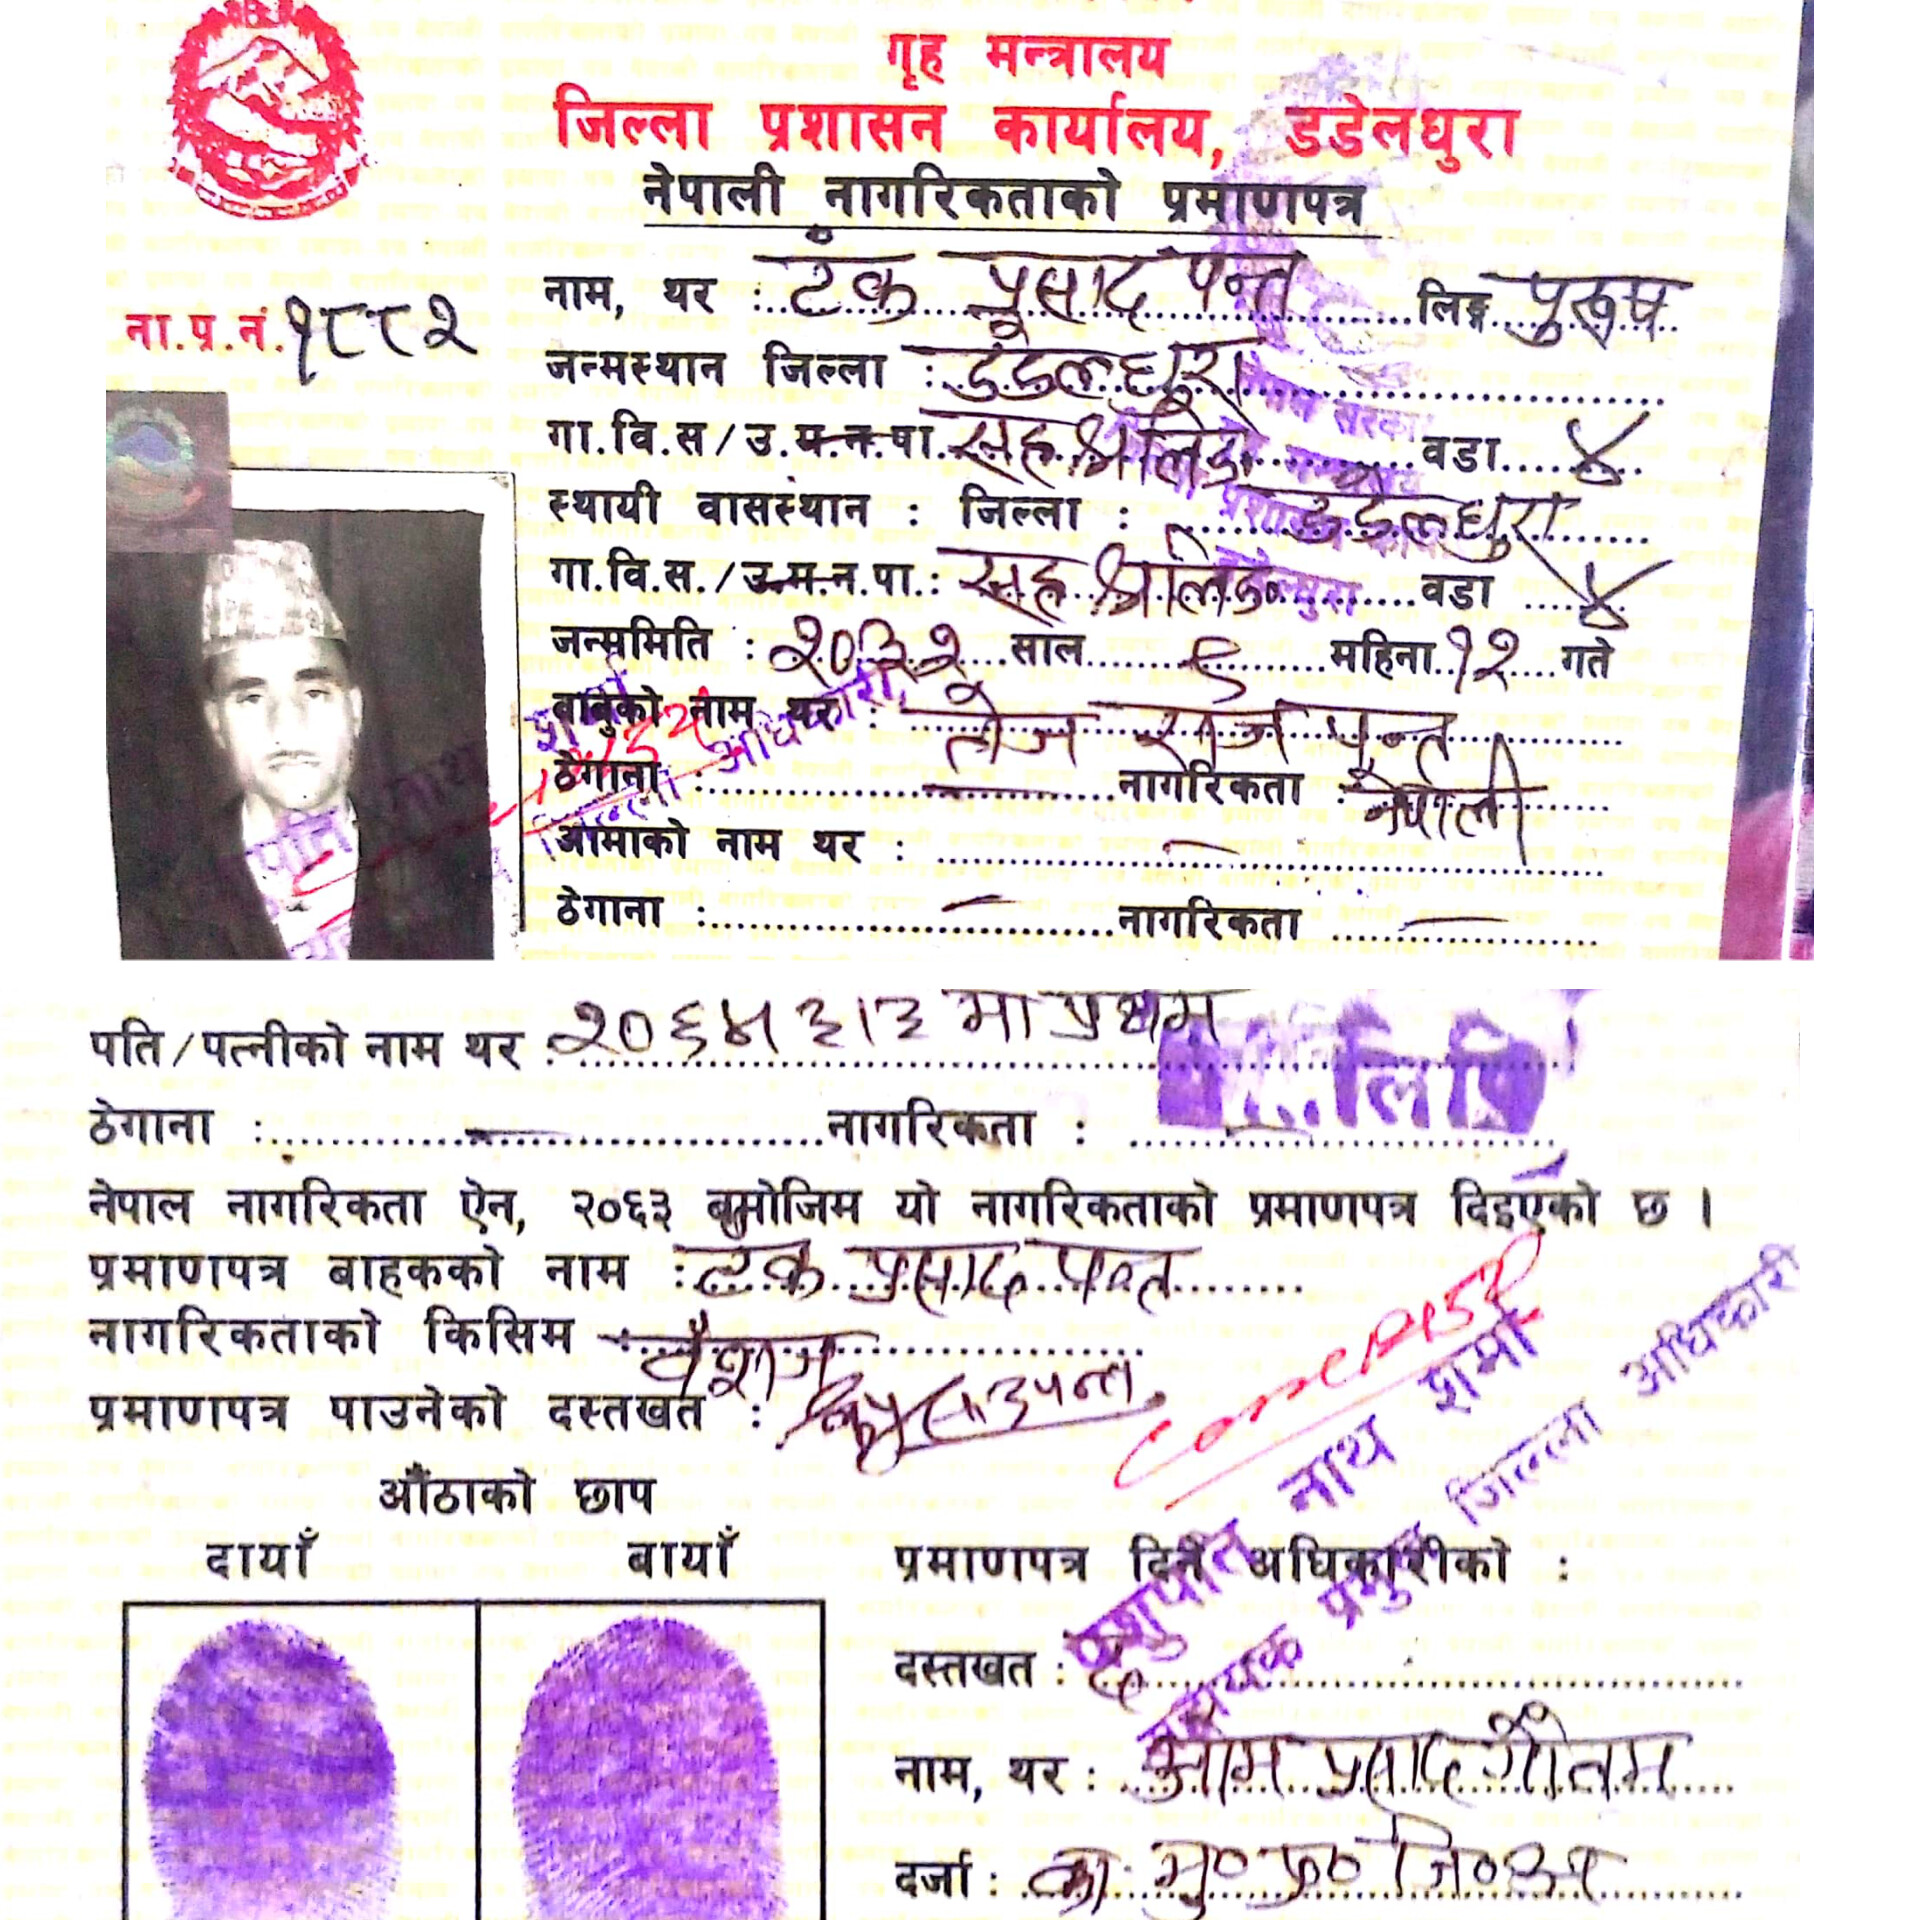 गृह मन्त्रालय
जिल्ला प्रशासन कार्यालय, डडेलधुरा
नेपाली नागरिकताको प्रमाणपत्र
ना.प्र.नं. १८८२
नाम, थर : टंक प्रसाद पन्त लिङ्ग पुरूष
जन्मस्थान जिल्ला : डडेलधुरा
गा.वि.स/उ.म.न.पा. सहश्रलिङ्ग वडा ४
स्थायी वासस्थान : जिल्ला : डडेलधुरा
गा.वि.स./उ.म.न.पा.: सहश्रलिङ्ग वडा ४
जन्ममिति : २०३२ साल ९ महिना १२ गते
बाबुको नाम थर : तोज राज पन्त
ठेगाना : नागरिकता : नेपाली
आमाको नाम थर :
ठेगाना : नागरिकता
पति/पत्नीको नाम थर : २०६४।३।३ मा प्रथम लिपि
ठेगाना : नागरिकता :
नेपाल नागरिकता ऐन, २०६३ बमोजिम यो नागरिकताको प्रमाणपत्र दिइएको छ ।
प्रमाणपत्र बाहकको नाम : टंक प्रसाद पन्त
नागरिकताको किसिम : वंशज
प्रमाणपत्र पाउनेको दस्तखत :
औंठाको छाप
दायाँ बायाँ
प्रमाणपत्र दिने अधिकारीको :
पशुपति नाथ शर्मा
सहायक प्रमुख जिल्ला अधिकारी
दस्तखत :
नाम, थर : ओम प्रसाद गौतम
दर्जा : का. मु० प्र० जि० अ